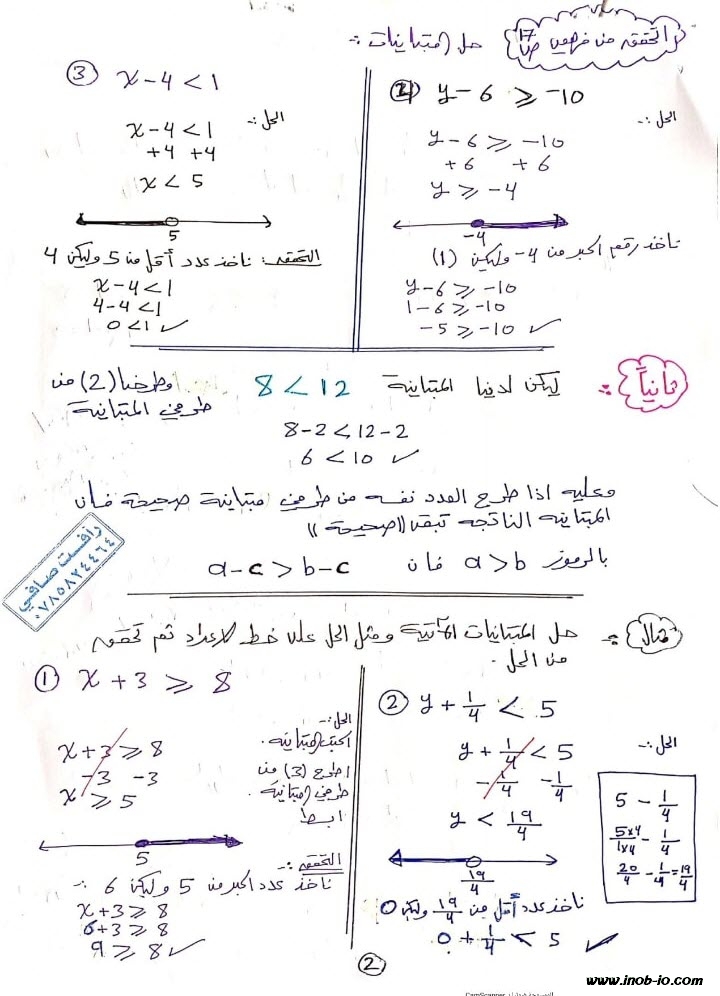 التحقق من فهمي ص ١٧ حل المتباينات :-
③ x - 4 < 1
الحل :-
x - 4 < 1
+4 +4
x < 5
5
التحقق : ناخذ عدد أقل من 5 وليكن 4
x - 4 < 1
4 - 4 < 1
0 < 1 ✓
④ y - 6 ≥ -10
الحل :-
y - 6 ≥ -10
+6 +6
y ≥ -4
-4
ناخذ رقم اكبر من 4- وليكن (1)
y - 6 ≥ -10
1 - 6 ≥ -10
-5 ≥ -10 ✓
ثانياً :- ليكن لدينا المتباينة 8 < 12 وطرحنا (2) من
طرفي المتباينة
8 - 2 < 12 - 2
6 < 10 ✓
وعليه اذا طرح العدد نفسه من طرفي متباينة صحيحة فان
المتباينه الناتجه تبقى ((صحيحة))
بالرموز a > b فان a - c > b - c
رأفت صافي
٠٧٨٥٨٢٤٤٦٤
مثال :- حل المتباينات الآتية ومثل الحل على خط الاعداد ثم تحقق
من الحل .
① x + 3 ≥ 8
الحل :-
اكتب المتباينه .
x + 3 ≥ 8
اطرح (3) من
-3 -3
طرفي المتباينة .
x ≥ 5
ابسط
5
التحقق :-
ناخذ عدد اكبر من 5 وليكن 6 :-
x + 3 ≥ 8
6 + 3 ≥ 8
9 ≥ 8 ✓
② y + 1/4 < 5
الحل :-
y + 1/4 < 5
-1/4 -1/4
y < 19/4
19/4
5 - 1/4
5×4/1×4 - 1/4
20/4 - 1/4 = 19/4
ناخذ عدد أقل من 19/4 وليكن 0
0 + 1/4 < 5 ✓
2
www.inob-io.com